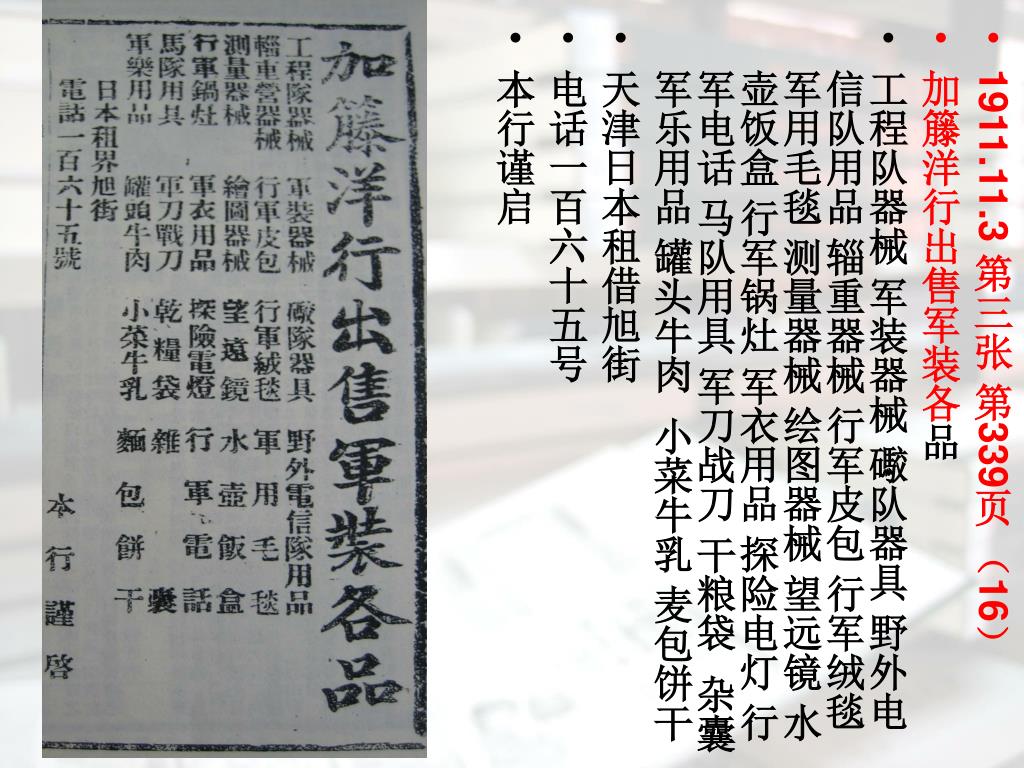 1911.11.3 第三张 第339页（16）
加籐洋行出售军装各品
工程队器械 军装器械 礮队器具 野外电
信队用品 辎重器械 行军皮包 行军绒毯
军用毛毯 测量器械 绘图器械 望远镜 水
壶饭盒 行军锅灶 军衣用品 探险电灯 行
军电话 马队用具 军刀战刀 干粮袋 杂囊
军乐用品 罐头牛肉 小菜牛乳 麦包饼干
天津日本租借旭街
电话一百六十五号
本行谨启
加籐洋行出售軍裝各品
工程隊器械 軍裝器械 礮隊器具 野外電信隊用品
輜重營器械 行軍皮包 行軍絨毯 軍用毛毯
測量器械 繪圖器械 望遠鏡 水壺飯盒
行軍鍋灶 軍衣用品 探險電燈 行軍電話
馬隊用具 軍刀戰刀 乾糧袋 雜囊
軍樂用品 罐頭牛肉 小菜牛乳 麵包餅干
日本租界旭街
電話一百六十五號 本行謹啓